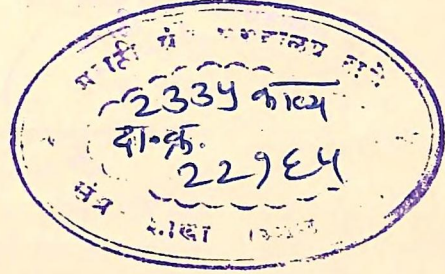 मराठी ग्रंथ संग्रहालय ठाणे
२३३५ काव्य
दा.क्र.
२२१६५